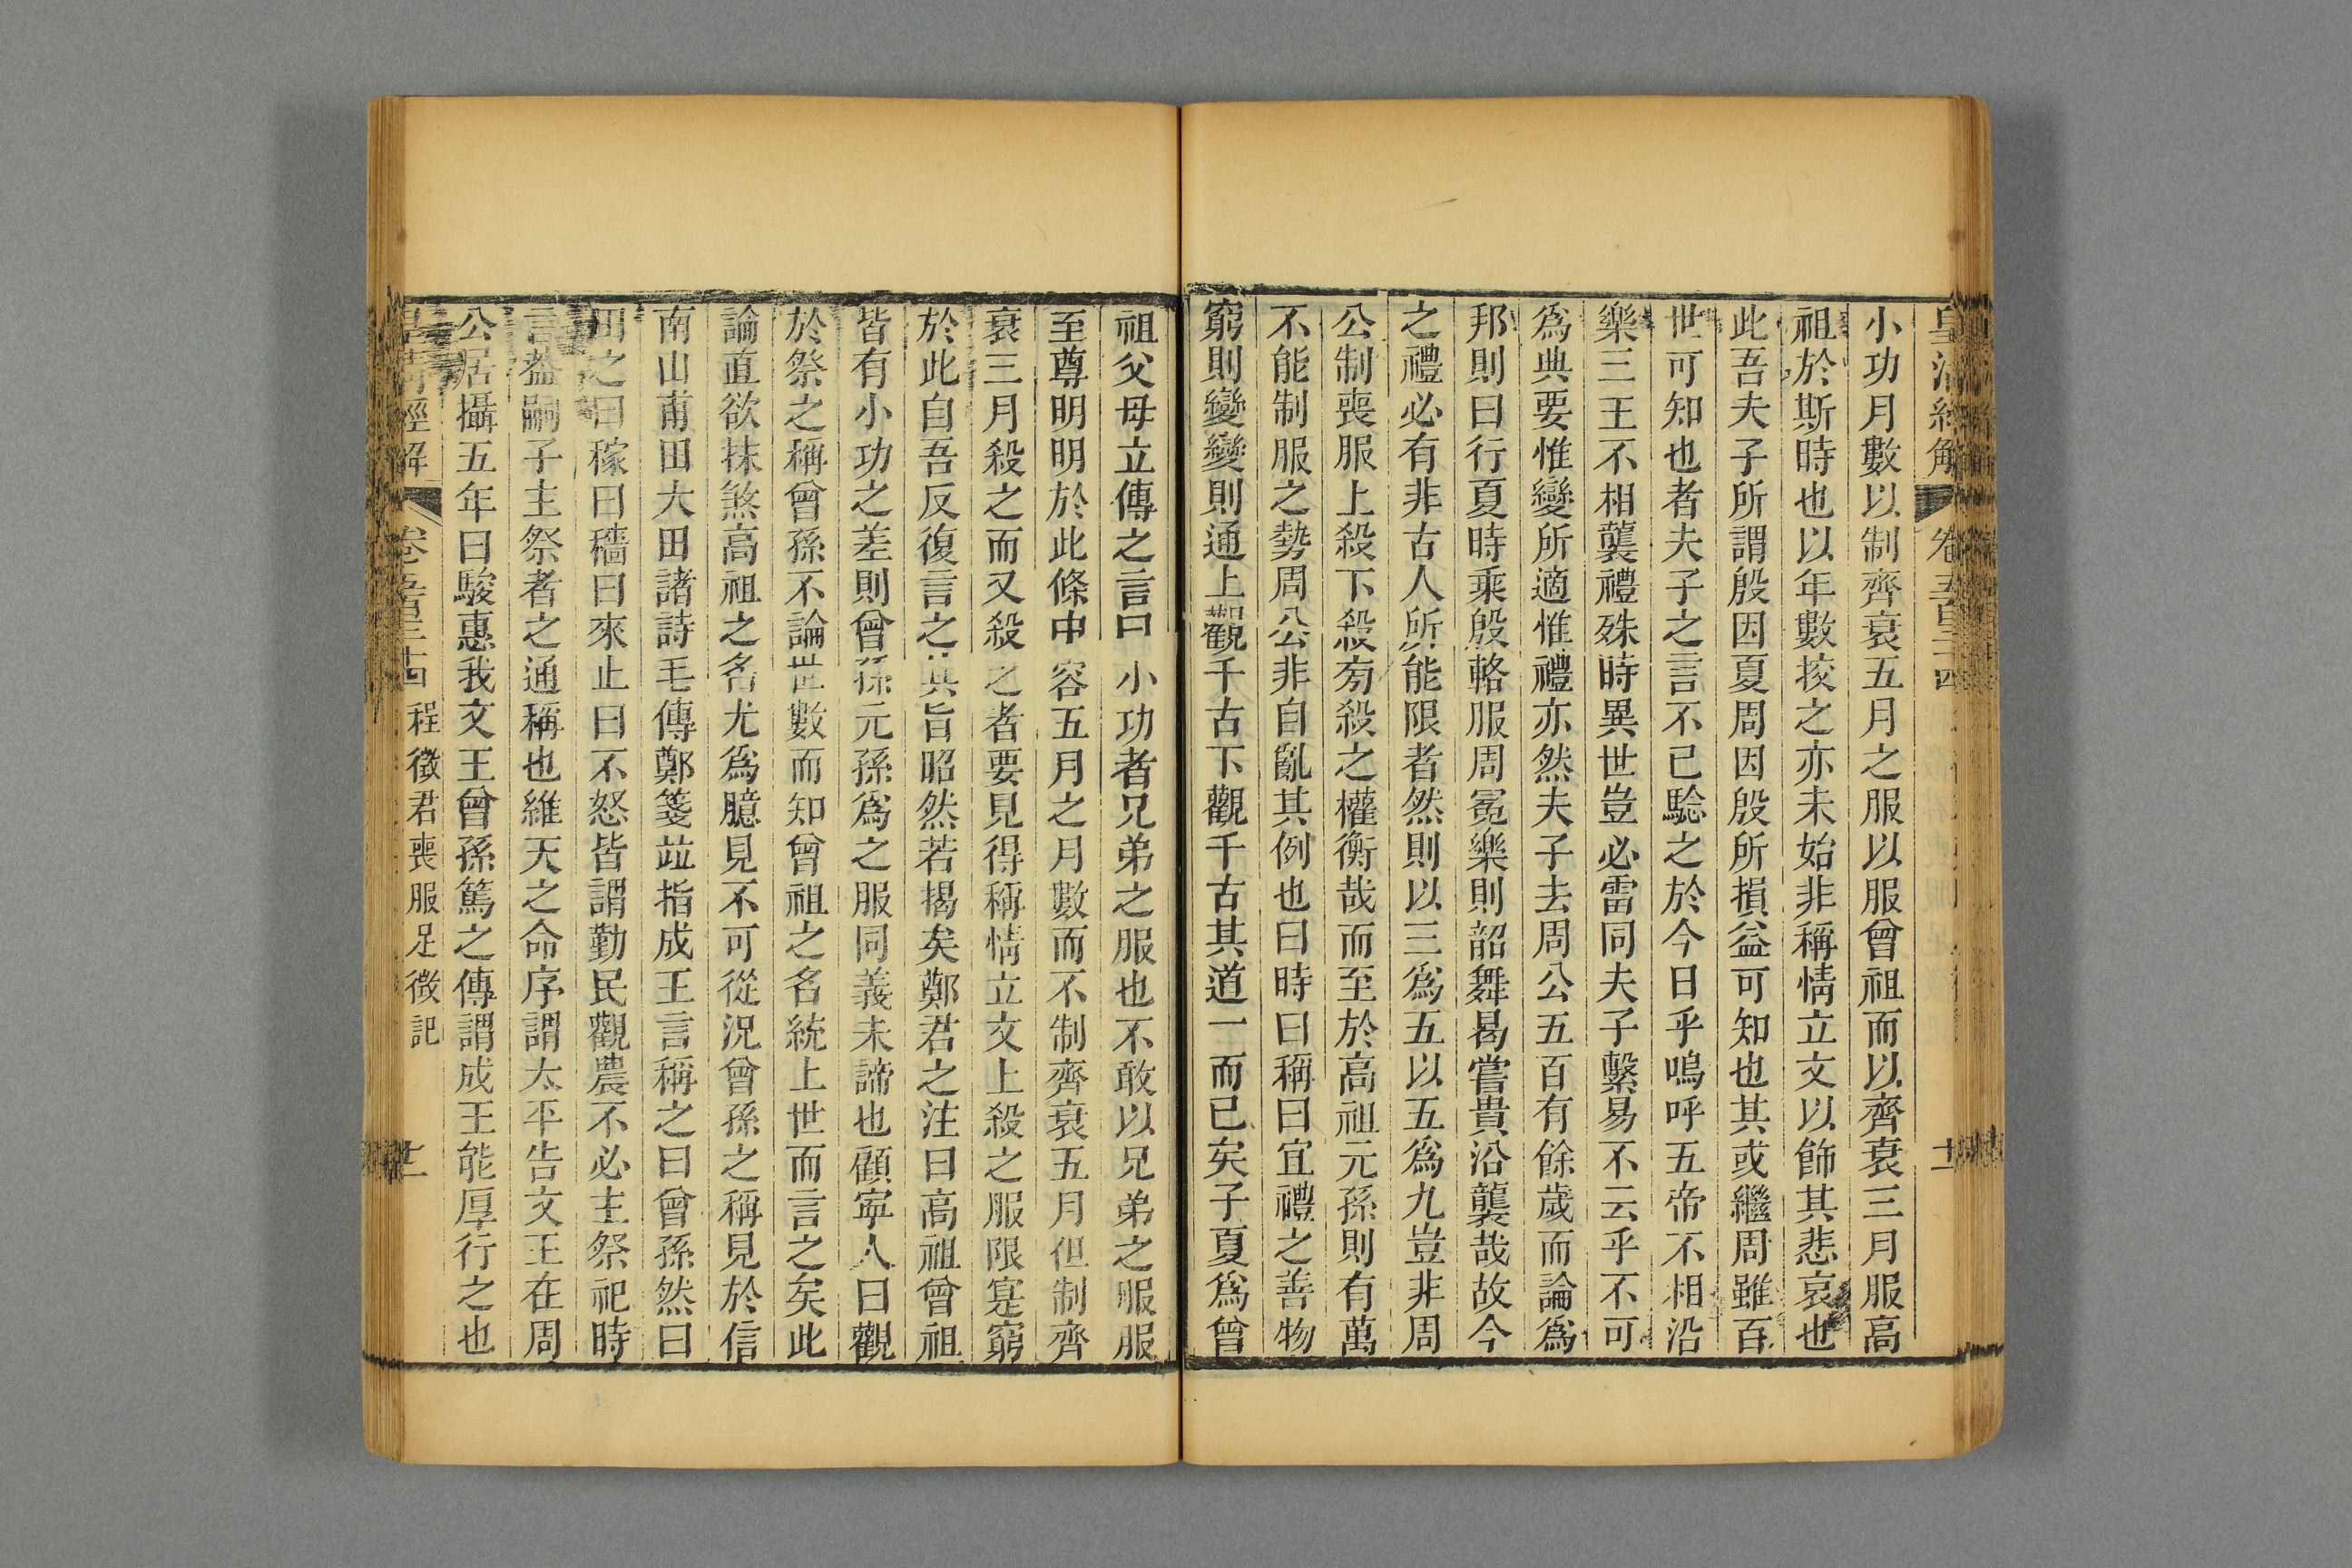 小功月數以制齊衰五月之服以服曾祖而以齊衰三月服高
祖於斯時也以年數挍之亦未始非稱情立文以飾其悲哀也
此吾夫子所謂殷因夏周因殷所損益可知也其或繼周雖百
世可知也者夫子之言不已騐之於今日乎嗚呼五帝不相沿
樂三王不相襲禮殊時異世豈必雷同夫子繫易不云乎不可
爲典要惟變所適惟禮亦然夫子去周公五百有餘歲而論爲
邦則曰行夏時乘殷輅服周冕樂則韶舞曷嘗貴沿襲哉故今
之禮必有非古人所能限者然則以三爲五以五爲九豈非周
公制喪服上殺下殺旁殺之權衡哉而至於高祖元孫則有萬
不能制服之勢周公非自亂其例也曰時曰稱曰宜禮之善物
窮則變變則通上觀千古下觀千古其道一而已矣子夏爲曾
祖父母立傳之言曰小功者兄弟之服也不敢以兄弟之服服
至尊明明於此條中容五月之月數而不制齊衰五月但制齊
衰三月殺之而又殺之者要見得稱情立文上殺之服限寔窮
於此自吾反復言之其旨昭然若揭矣鄭君之注曰高祖曾祖
皆有小功之差則曾孫元孫爲之服同義未諦也顧寧人曰觀
於祭之稱曾孫不論世數而知曾祖之名統上世而言之矣此
論直欲抹煞高祖之名尤爲臆見不可從況曾孫之稱見於信
南山甫田大田諸詩毛傳鄭箋竝指成王言稱之曰曾孫然曰
田之曰稼曰穡曰來止曰不怒皆謂勤民觀農不必主祭祀時
言葢嗣子主祭者之通稱也維天之命序謂太平告文王在周
公居攝五年曰駿惠我文王曾孫篤之傳謂成王能厚行之也
皇清經解 卷五百三十四 程徵君喪服足徵記 十二